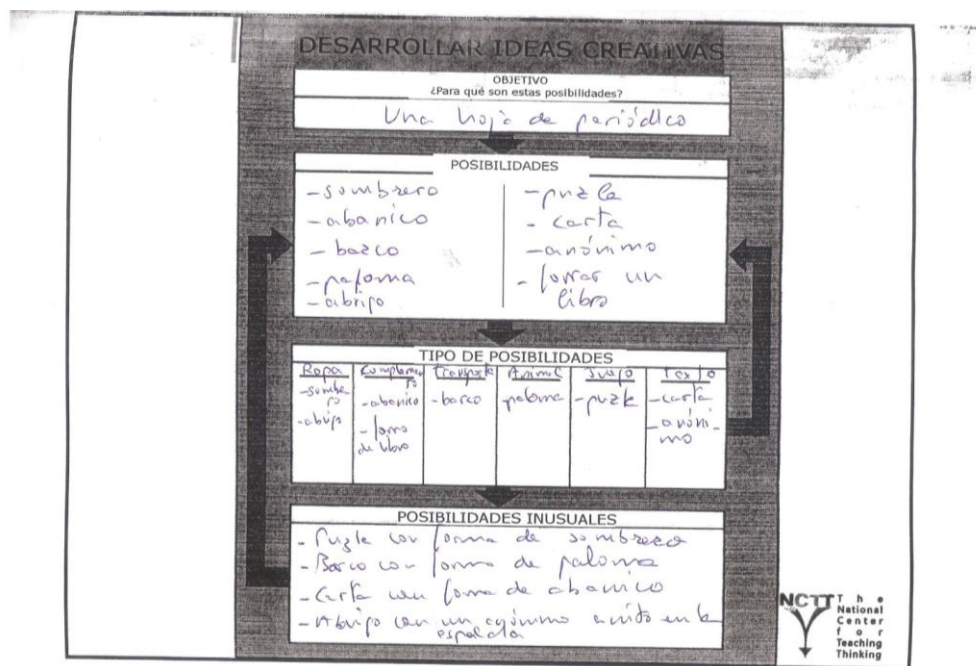 DESARROLLAR IDEAS CREATIVAS
OBJETIVO
¿Para qué son estas posibilidades?
Una hoja de periódico
POSIBILIDADES
-sombrero
-abanico
-barco
-paloma
-abrigo
-puzle
-carta
-anónimo
-forrar un
libro
TIPO DE POSIBILIDADES
Ropa
-sombre
ro
-abrigo
Complemen
to
-abanico
-forro
de libro
Transporte
-barco
Animal
paloma
Juego
-puzle
Texto
-carta
-anóni-
mo
POSIBILIDADES INUSUALES
- Puzle con forma de sombrero
- Barco con forma de paloma
- Carta con forma de abanico
- Abrigo con un anónimo escrito en la
espalda
NCTT The
National
Center
for
Teaching
Thinking